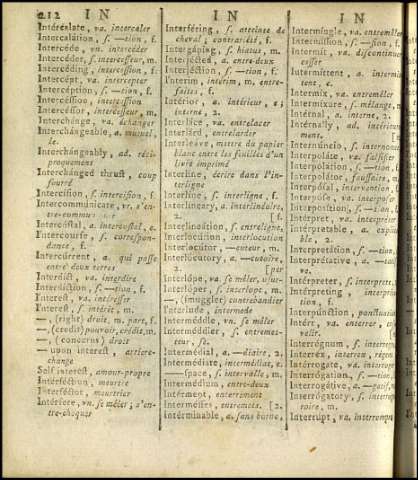 212 IN IN IN
Intérxlate, va. intercaler
Intercalátion, ſ. —tion, f.
Intercéde, vn. intercéder
Intercéder, ſ. interceſſeur, m.
Intercéding, ſ. interceſſion, f.
Intercépt, va. intercepter
Intercéption, ſ. —tion, f.
Interceſſion, interceſſion
Interceſſor, interceſſeur, m.
Interchánge, va. échanger
Interchángeable, a. mutuel,
le.
Interchángeably, ad. réci-
proquement
Interchánged thruſt, coup
fourré
Interciſion, ſ. interciſion, f.
Intercommúnicate, vr. s'en-
tre-commu
Intercóſtal, a. intercoſtal, e.
Intercourſe, ſ. correſpon-
dance, f.
Intercúrrent, a. qui paſſe
entre deux terres
Interdíct, va. interdire
Interdíction, ſ. —tion, f.
I'ntereſt, va. intéreſſer
I'ntereſt, ſ. intérêt, m.
—, (right) droit, m. part, f.
—, (credit) pouvoir, crédit, m.
—, (concerns) droit
— upon intereſt, arriere-
change
Self intereſt, amour-propre
Interféction, meurtre
Interféctor, meurtrier
Interfére, vn. ſe mêler; s'en-
tre-choquer
Interféring, ſ. atteinte de
cheval; contrariété, f.
Intergáping, ſ. hiatus, m.
Interjácted, a. entre-deux
Interjéction, ſ. —tion, f.
I'nterim, intérim, m. entre-
faites, f.
Intérior, a. intérieur, e;
interne, 2.
Interláce, va. entrelacer
Interlárd, entrelarder
Interleave, mettre du papier
blanc entre les feuilles d'un
livre imprimé
Interlíne, écrire dans l'in-
terligne
Interlíne, ſ. interligne, f.
Interlíneary, a. interlinéaire,
2. [f.
Interlineátion, ſ. entreligne,
Interlocútion, interlocution
Interlócutor, —teur, m.
Interlócutory, a. —cutoire,
2. [per
Interlópe, vn. ſe mêler, uſur-
Interlóper, ſ. interlope, m.
—, (ſmuggler) contrebandier
I'nterlude, intermede
Interméddle, vn. ſe mêler
Interméddler, ſ. entremet-
teur, ſe.
Intermédial, a. —diaire, 2.
Intermédiate, intermédiat, e.
—ſpace, ſ. intervalle, m.
Intermédium, entre-deux
Intérment, enterrement
Interméſſes, entremets. [2.
Intérminable, a. ſans borne,
Intermíngle, va. entremêler
Intermíſſion, ſ. —ſſion, f.
Intermít, va. diſcontinuer
ceſſer
Intermíttent, a. interm
tent, e.
Intermíx, va. entremêler
Intermíxture, ſ. mélange, m.
Intérnal, a. interne, 2.
Intérnally, ad. intérieure-
ment [m.
Internúncio, ſ. internonce
Intérpolate, va. falſifier
Interpolátion, ſ. —tion, f.
Interpolátor, fauſſaire, m.
Interpóſal, intervention, f.
Interpóſe, va. interpoſer
Interpoſítion, ſ. —tion,
Intérpret, va. interpréter
Intérpretable, a. expliea-
ble, 2.
Interpretátion, ſ. —tion,
Intérpretative, a. —tati
ve.
Intérpreter, ſ. interprete,
Intérpreting, interpréta-
tion, f.
Interpúnction, ponctuation
Intérr, va. enterrer,
velir.
Intérregnum, ſ. interregne
Interréx, interrex, régent
Intérrogate, va. interroger
Interrogátion, ſ. —tion,
Interrógative, a. —gatif,
Interrógatory, ſ. interroga-
toire, m.
Interrúpt, va. interrompre